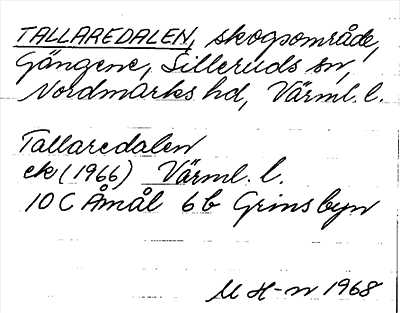 TALLAREDALEN, skogsområde,
Gängene, Silleruds sn,
Nordmarks hd, Värml. l.
Tallaredalen
ek (1966) Värml. l.
10 C Åmål 6 b Grinsbyn
M H-n 1968